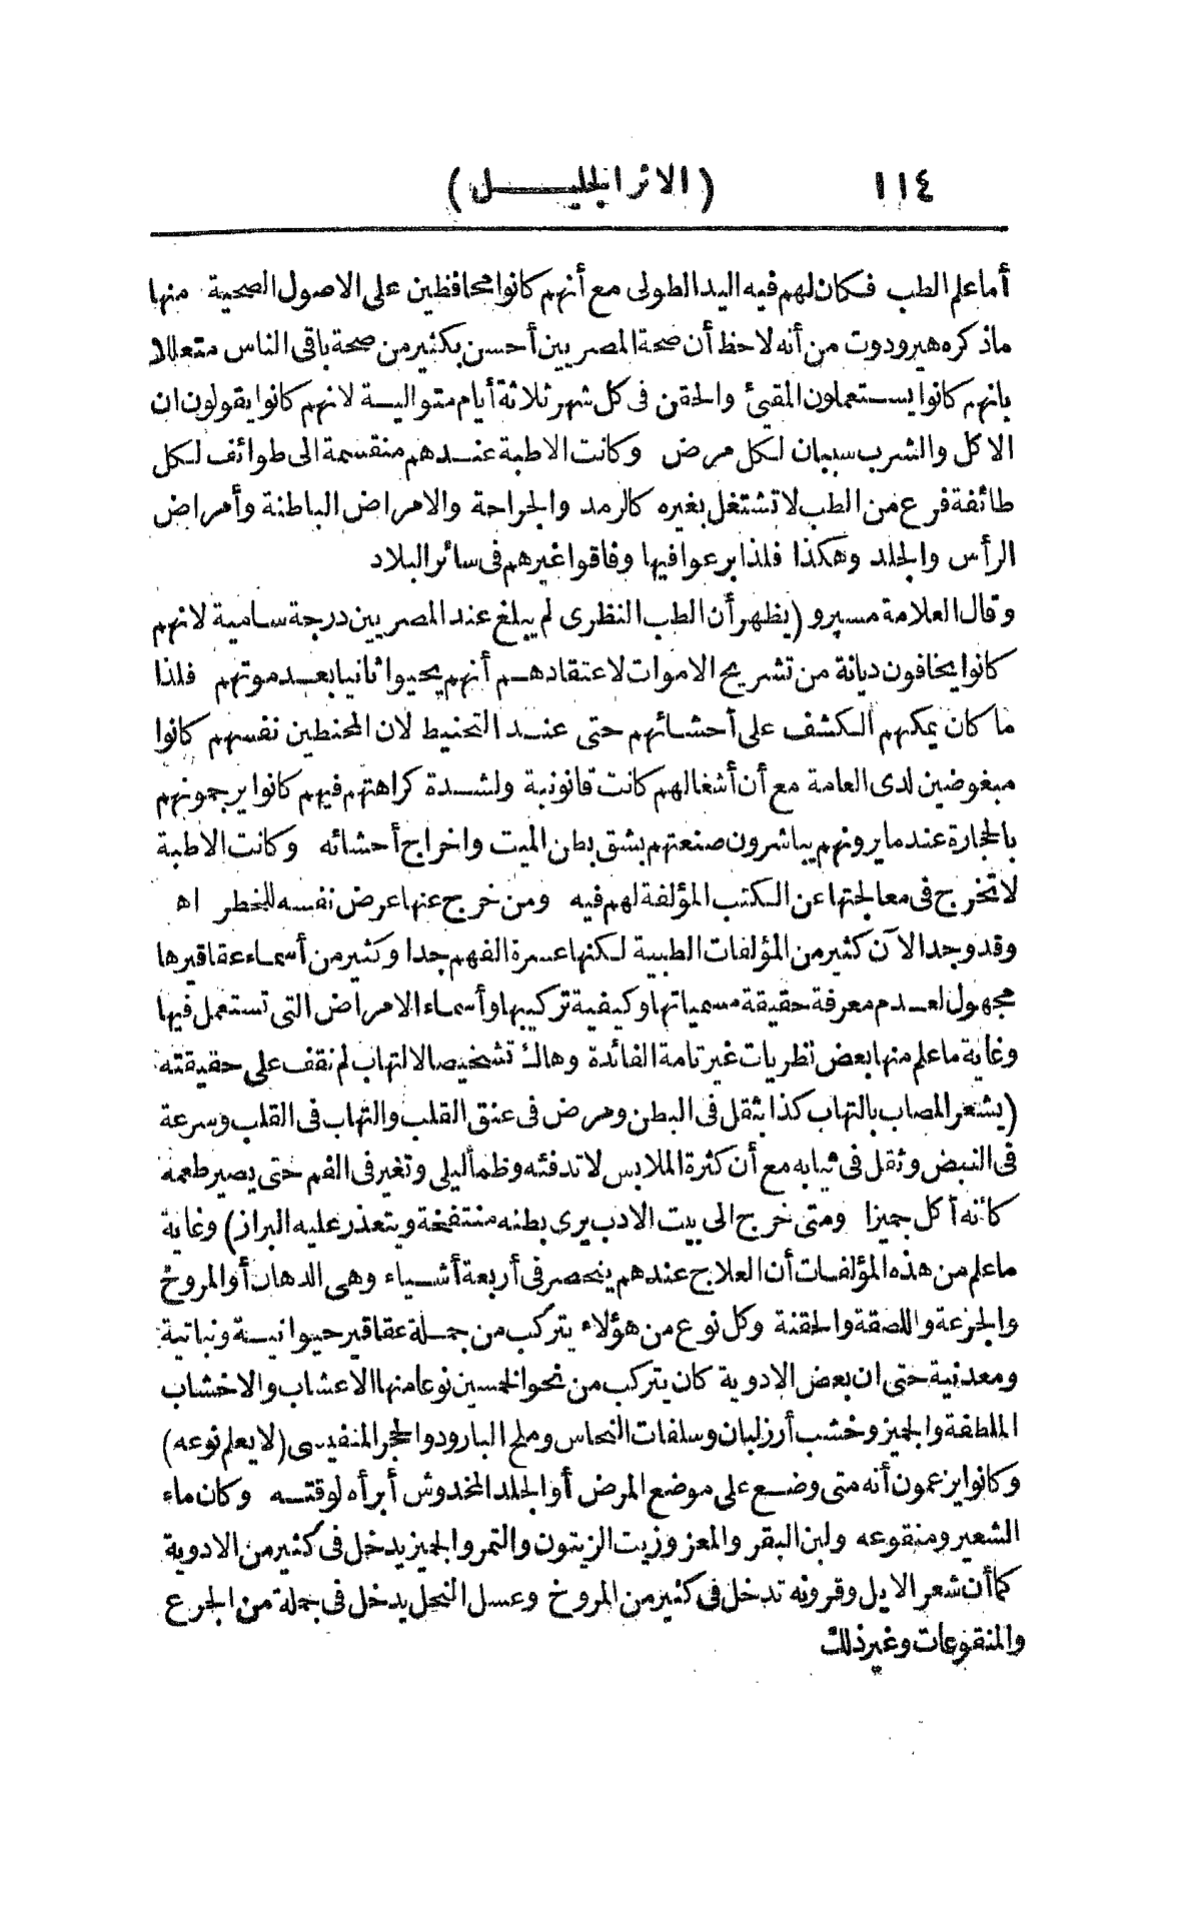 ١١٤ (الاثر الجليل)
أما علم الطب فكان لهم فيه اليد الطولى مع أنهم كانوا محافظين على الاصول الصحية منها
ماذكره هيرودوت من أنه لاحظ أن صحة المصريين أحسن بكثير من صحة باقى الناس متعللا
بانهم كانوا يستعملون المقيئ والحقن فى كل شهر ثلاثة أيام متوالية لانهم كانوا يقولون ان
الاكل والشرب سببان لكل مرض وكانت الاطبة عندهم منقسمة الى طوائف لكل
طائفة فرع من الطب لا تشتغل بغيره كالرمد والجراحة والامراض الباطنة وأمراض
الرأس والجلد وهكذا فلذا برعوا فيها وفاقوا غيرهم فى سائر البلاد
وقال العلامة مسپرو (يظهر أن الطب النظرى لم يبلغ عند المصريين درجة سامية لانهم
كانوا يخافون ديانة من تشريح الاموات لاعتقادهم أنهم يحيوا ثانيا بعد موتهم فلذا
ما كان يمكنهم الكشف على أحشائهم حتى عند التحنيط لان المحنطين نفسهم كانوا
مبغوضين لدى العامة مع أن أشغالهم كانت قانونية ولشدة كراهتهم فيهم كانوا يرجمونهم
بالحجارة عندما يرونهم يباشرون صنعتهم بشق بطن الميت واخراج أحشائه وكانت الاطبة
لا تخرج فى معالجتها عن الكتب المؤلفة لهم فيه ومن خرج عنها عرض نفسه للخطر اه
وقد وجد الآن كثير من المؤلفات الطبية لكنها عسرة الفهم جدا وكثير من أسماء عقاقيرها
مجهول لعدم معرفة حقيقة مسمياتها وكيفية تركيبها وأسماء الامراض التى تستعمل فيها
وغاية ما علم منها بعض نظريات غير تامة الفائدة وهاك تشخيصا لالتهاب لم نقف على حقيقته
(يشعر المصاب بالتهاب كذا بثقل فى البطن ومرض فى عنق القلب والتهاب فى القلب وسرعة
فى النبض وثقل فى ثيابه مع أن كثرة الملابس لا تدفئه وظمأ ليلى وتغير فى الفم حتى يصير طعمه
كانه أكل جميزا ومتى خرج الى بيت الادب يرى بطنه منتفخة ويتعذر عليه البراز) وغاية
ما علم من هذه المؤلفات أن العلاج عندهم ينحصر فى أربعة أشياء وهى الدهان أو المروخ
والجرعة واللصقة والحقنة وكل نوع من هؤلاء يتركب من جملة عقاقير حيوانية ونباتية
ومعدنية حتى ان بعض الادوية كان يتركب من نحو الخمسين نوعا منها الاعشاب والاخشاب
الملطفة والجميز وخشب أرز لبنان وسلفات النحاس وملح البارود والحجر المنفيسى (لا يعلم نوعه)
وكانوا يزعمون أنه متى وضع على موضع المرض أو الجلد المخدوش أبرأه لوقته وكان ماء
الشعير ومنقوعه ولبن البقر والمعز وزيت الزيتون والتمر والجميز يدخل فى كثير من الادوية
كما أن شعر الايل وقرونه تدخل فى كثير من المروخ وعسل النحل يدخل فى جملة من الجرع
والمنقوعات وغير ذلك